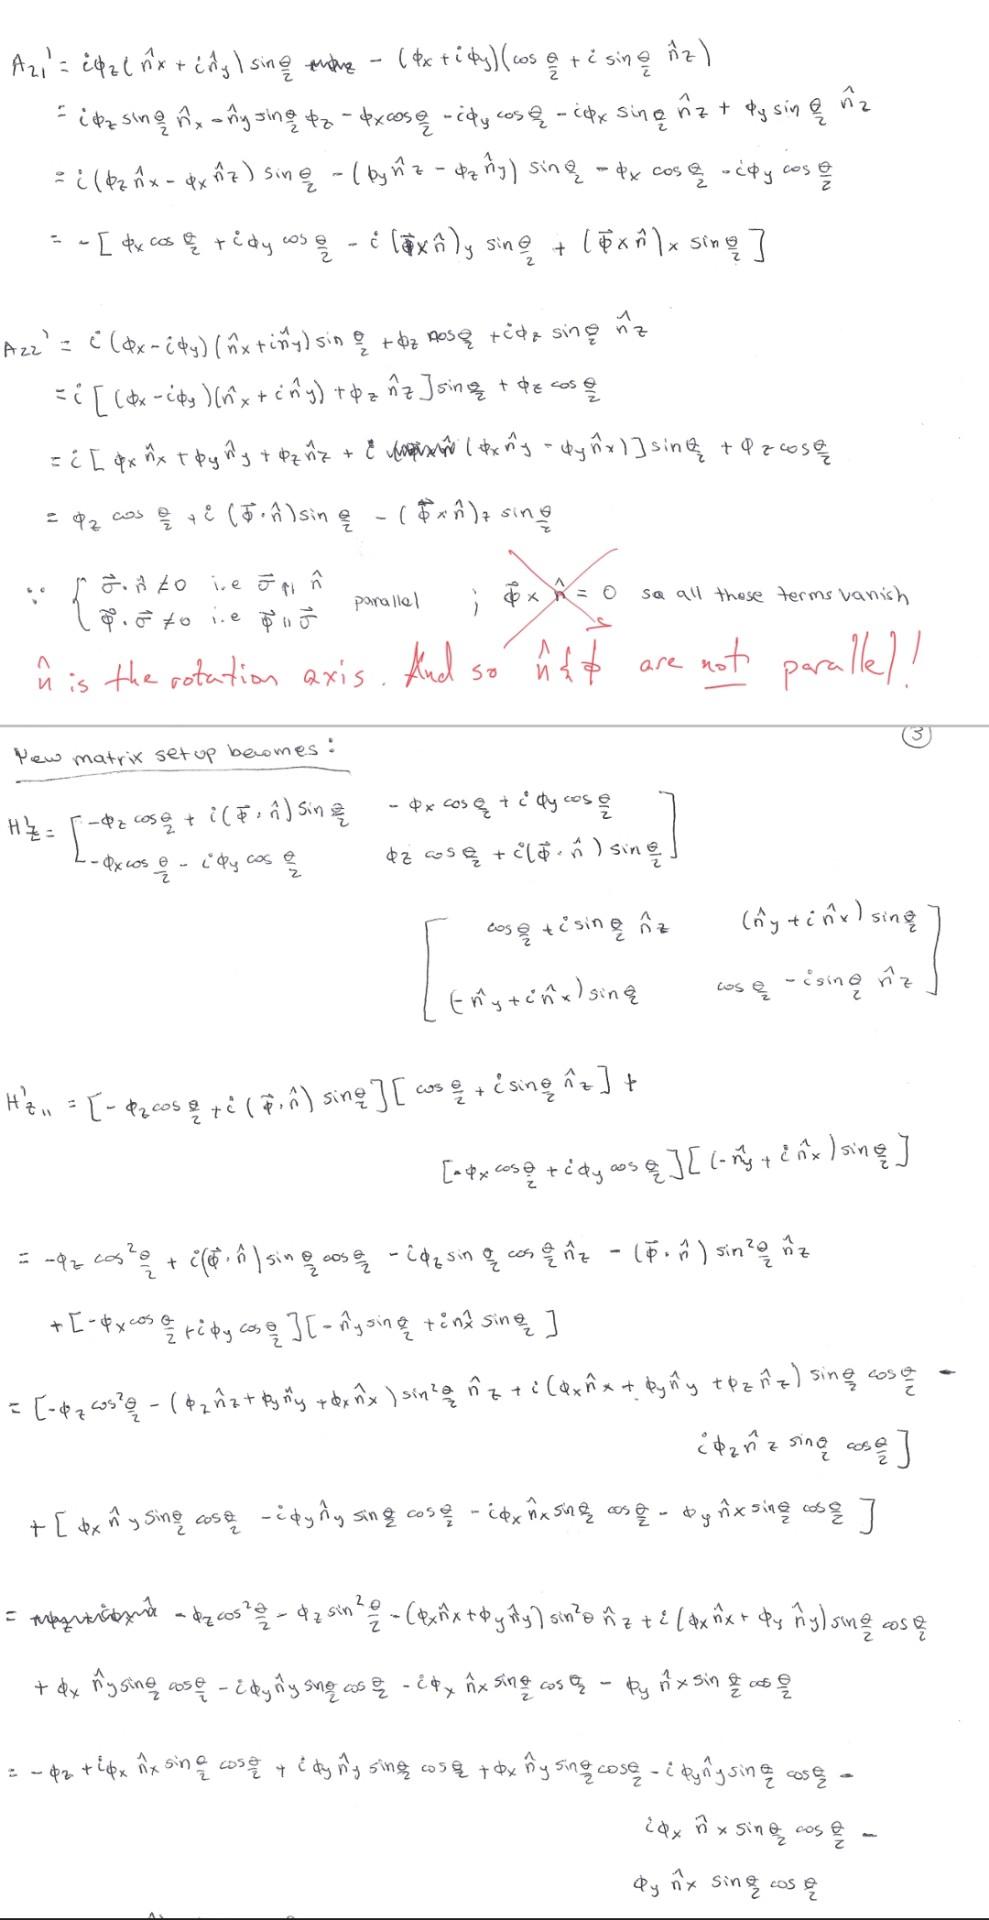 A₂₁' = iϕz(n̂x + in̂y) sin θ/2 - (ϕx + iϕy)(cos θ/2 + i sin θ/2 n̂z)
= iϕz sin θ/2 n̂x - n̂y sin θ/2 ϕz - ϕx cos θ/2 - iϕy cos θ/2 - iϕx sin θ/2 n̂z + ϕy sin θ/2 n̂z
= i(ϕz n̂x - ϕx n̂z) sin θ/2 - (ϕy n̂z - ϕz n̂y) sin θ/2 - ϕx cos θ/2 - iϕy cos θ/2
= -[ϕx cos θ/2 + iϕy cos θ/2 - i(ϕ⃗ x n̂)y sin θ/2 + (ϕ⃗ x n̂)x sin θ/2]
A₂₂' = i(ϕx - iϕy)(n̂x + in̂y) sin θ/2 + ϕz cos θ/2 + iϕz sin θ/2 n̂z
= i[(ϕx - iϕy)(n̂x + in̂y) + ϕz n̂z] sin θ/2 + ϕz cos θ/2
= i[ϕx n̂x + ϕy n̂y + ϕz n̂z + i (ϕx n̂y - ϕy n̂x)] sin θ/2 + ϕz cos θ/2
= ϕz cos θ/2 + i(ϕ⃗·n̂) sin θ/2 - (ϕ⃗ x n̂)z sin θ/2
∵ { σ⃗·n̂ ≠ 0 i.e σ⃗ ∥ n̂ parallel ; ϕ⃗ x n̂ = 0 so all these terms vanish
ϕ⃗·σ⃗ ≠ 0 i.e ϕ⃗ ∥ σ⃗
n̂ is the rotation axis. And so n̂ & ϕ⃗ are not parallel!
③
New matrix setup becomes:
H'z = [ -ϕz cos θ/2 + i(ϕ⃗·n̂) sin θ/2 -ϕx cos θ/2 + iϕy cos θ/2
-ϕx cos θ/2 - iϕy cos θ/2 ϕz cos θ/2 + i(ϕ⃗·n̂) sin θ/2 ]
[ cos θ/2 + i sin θ/2 n̂z (n̂y + in̂x) sin θ/2
(-n̂y + in̂x) sin θ/2 cos θ/2 - i sin θ/2 n̂z ]
H'z₁₁ = [-ϕz cos θ/2 + i(ϕ⃗·n̂) sin θ/2][cos θ/2 + i sin θ/2 n̂z] +
[-ϕx cos θ/2 + iϕy cos θ/2][(-n̂y + in̂x) sin θ/2]
= -ϕz cos² θ/2 + i(ϕ⃗·n̂) sin θ/2 cos θ/2 - iϕz sin θ/2 cos θ/2 n̂z - (ϕ⃗·n̂) sin² θ/2 n̂z
+ [-ϕx cos θ/2 + iϕy cos θ/2][-n̂y sin θ/2 + in̂x sin θ/2]
= [-ϕz cos² θ/2 - (ϕz n̂z + ϕy n̂y + ϕx n̂x) sin² θ/2 n̂z + i(ϕx n̂x + ϕy n̂y + ϕz n̂z) sin θ/2 cos θ/2 -
iϕz n̂z sin θ/2 cos θ/2]
+ [ϕx n̂y sin θ/2 cos θ/2 - iϕy n̂y sin θ/2 cos θ/2 - iϕx n̂x sin θ/2 cos θ/2 - ϕy n̂x sin θ/2 cos θ/2]
= -ϕz cos² θ/2 - ϕz sin² θ/2 - (ϕx n̂x + ϕy n̂y) sin² θ n̂z + i(ϕx n̂x + ϕy n̂y) sin θ/2 cos θ/2
+ ϕx n̂y sin θ/2 cos θ/2 - iϕy n̂y sin θ/2 cos θ/2 - iϕx n̂x sin θ/2 cos θ/2 - ϕy n̂x sin θ/2 cos θ/2
= -ϕz + iϕx n̂x sin θ/2 cos θ/2 + iϕy n̂y sin θ/2 cos θ/2 + ϕx n̂y sin θ/2 cos θ/2 - iϕy n̂y sin θ/2 cos θ/2 -
iϕx n̂x sin θ/2 cos θ/2 -
ϕy n̂x sin θ/2 cos θ/2